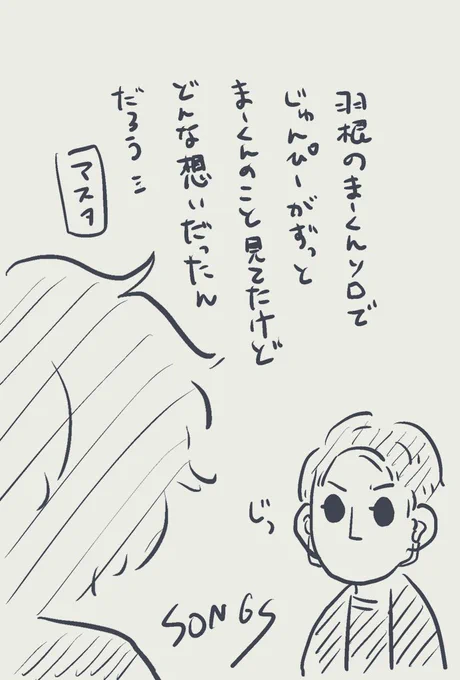 羽根のまーくんソロで
じゅんぴーがずっと
まーくんのこと見てたけど
どんな想いだったん
だろう…
マスタ
じっ
SONGS